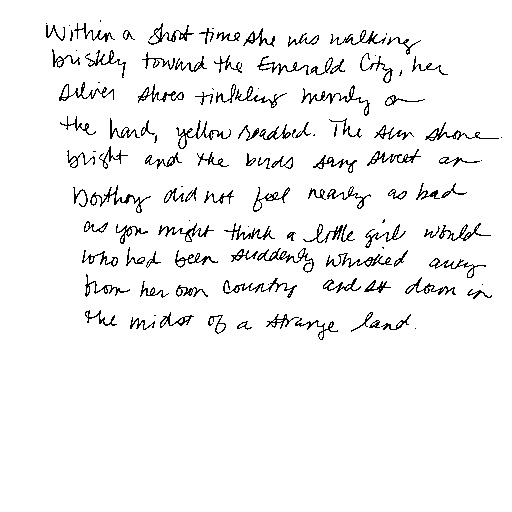 Within a short time she was walking
briskly toward the Emerald City, her
silver shoes tinkling merrily on
the hard, yellow roadbed. The sun shone
bright and the birds sang sweet an
Dorthoy did not feel nearly as bad
as you might think a little girl would
who had been suddenly whisked away
from her own country and set down in
the midst of a strange land.